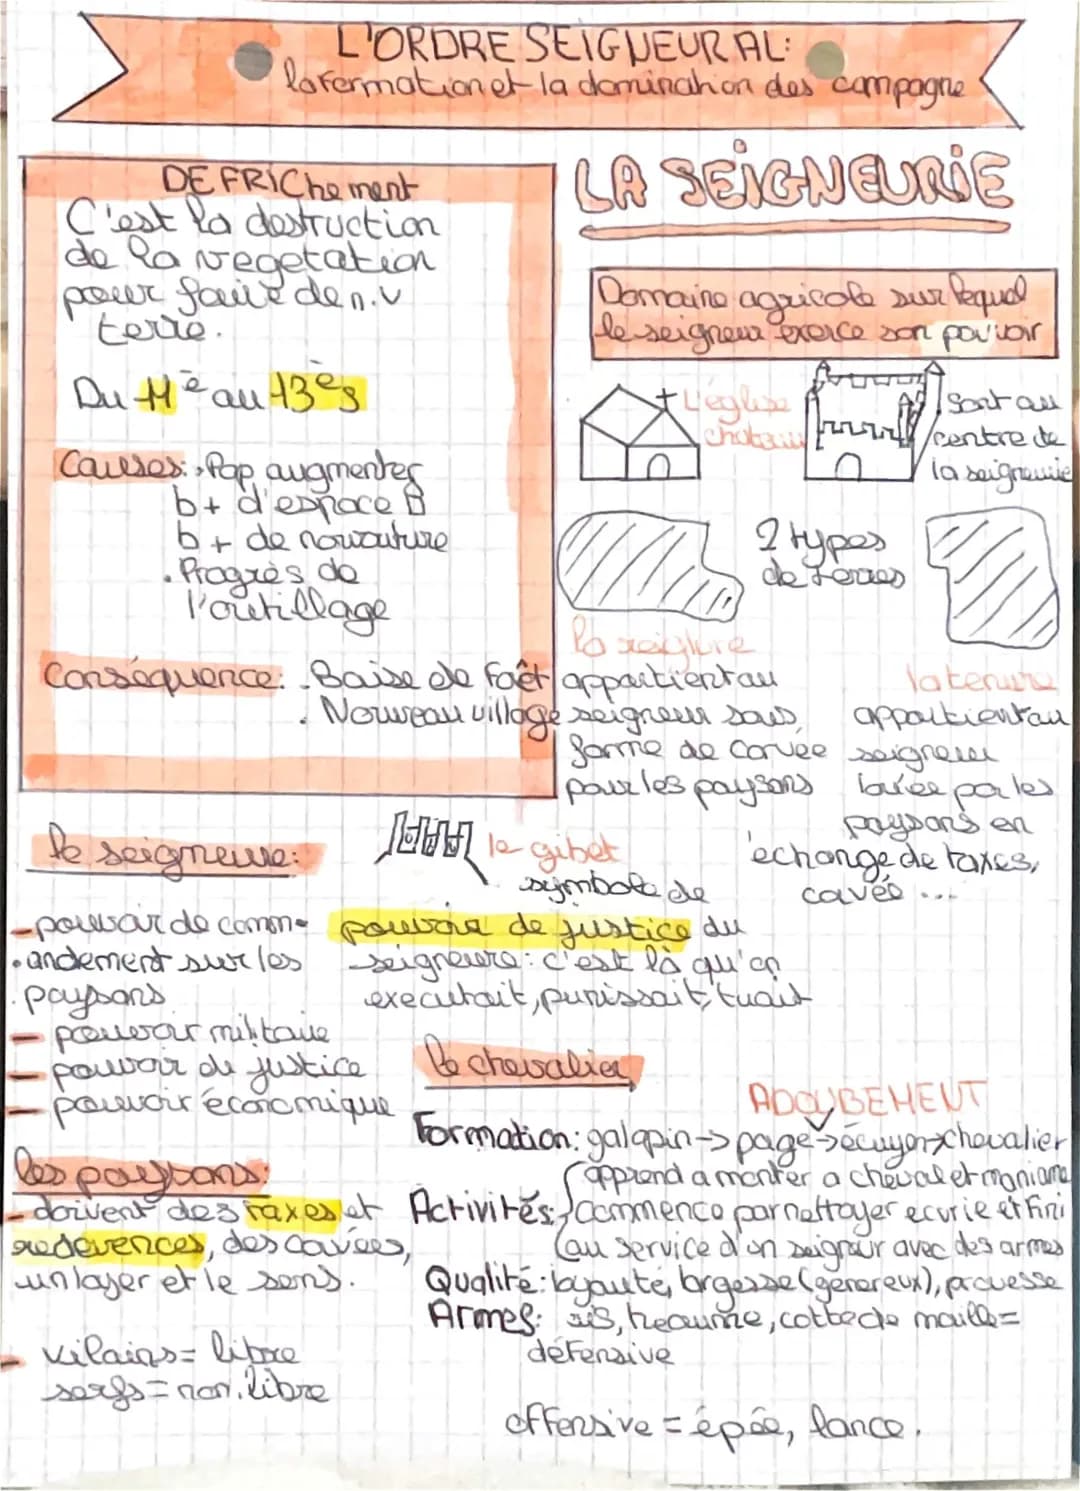 L'ORDRE SEIGNEURAL:
la formation et la domination des campagne
DEFRIChement
C'est la destruction
de la vegetation
pour faire de n.v
terre.
Du 11è au 13ès
Causes: Pop augmenter
b+ d'espace
b+ de nourriture
. Progrès de
l'outillage
Conséquence: . Baise de foêt
. Nouveau village
LA SEIGNEURIE
Domaine agricole sur lequel
le seigneur exerce son pouvoir
L'église
chateau
Sont au
centre de
la seigneurie
2 types
de terres
la
appartient au
seigneur sous
forme de corvée
pour les paysans
la tenure
appartient au
seigneur
louée par les
paysans en
échange de taxes,
cavée ...
le seigneure:
- pouvoir de comm-
andement sur les
paysans
- pouvoir militaire
- pouvoir de justice
- pouvoir économique
le gibet
symbole de
pouvoir de justice du
seigneure: c'est là qu'on
executait, punissait, tuait
les paysans:
- doivent des taxes et
redevences, des cavées,
un loyer et le sens.
- vilains = libre
serfs = non.libre
le chevalier
ADOUBEMENT
Formation: galopin -> page -> écuyer -> chevalier
apprend a monter a cheval et
Activités: commence par nettoyer ecurie et fini
au service d'un seigneur avec des armes
Qualité: loyauté, largesse (genereux), prouesse
Armes: heaume, cotte de maille =
défensive
offensive = épée, lance.